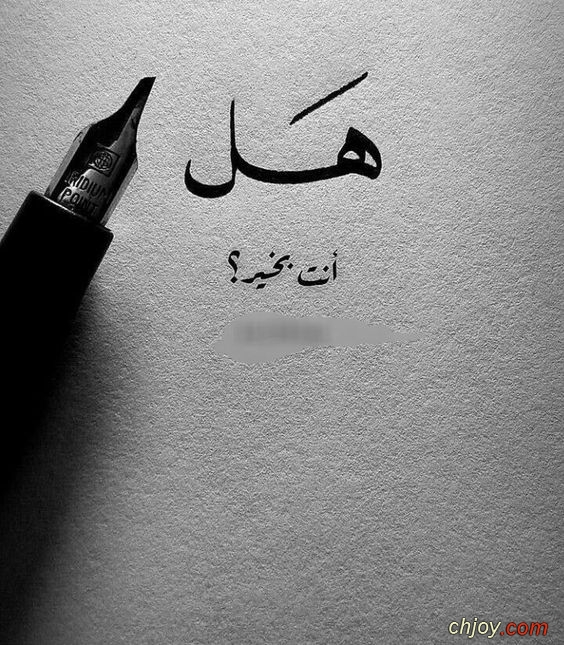 هل
أنت بخير؟
IRIDIUM
POINT
chjoy.com